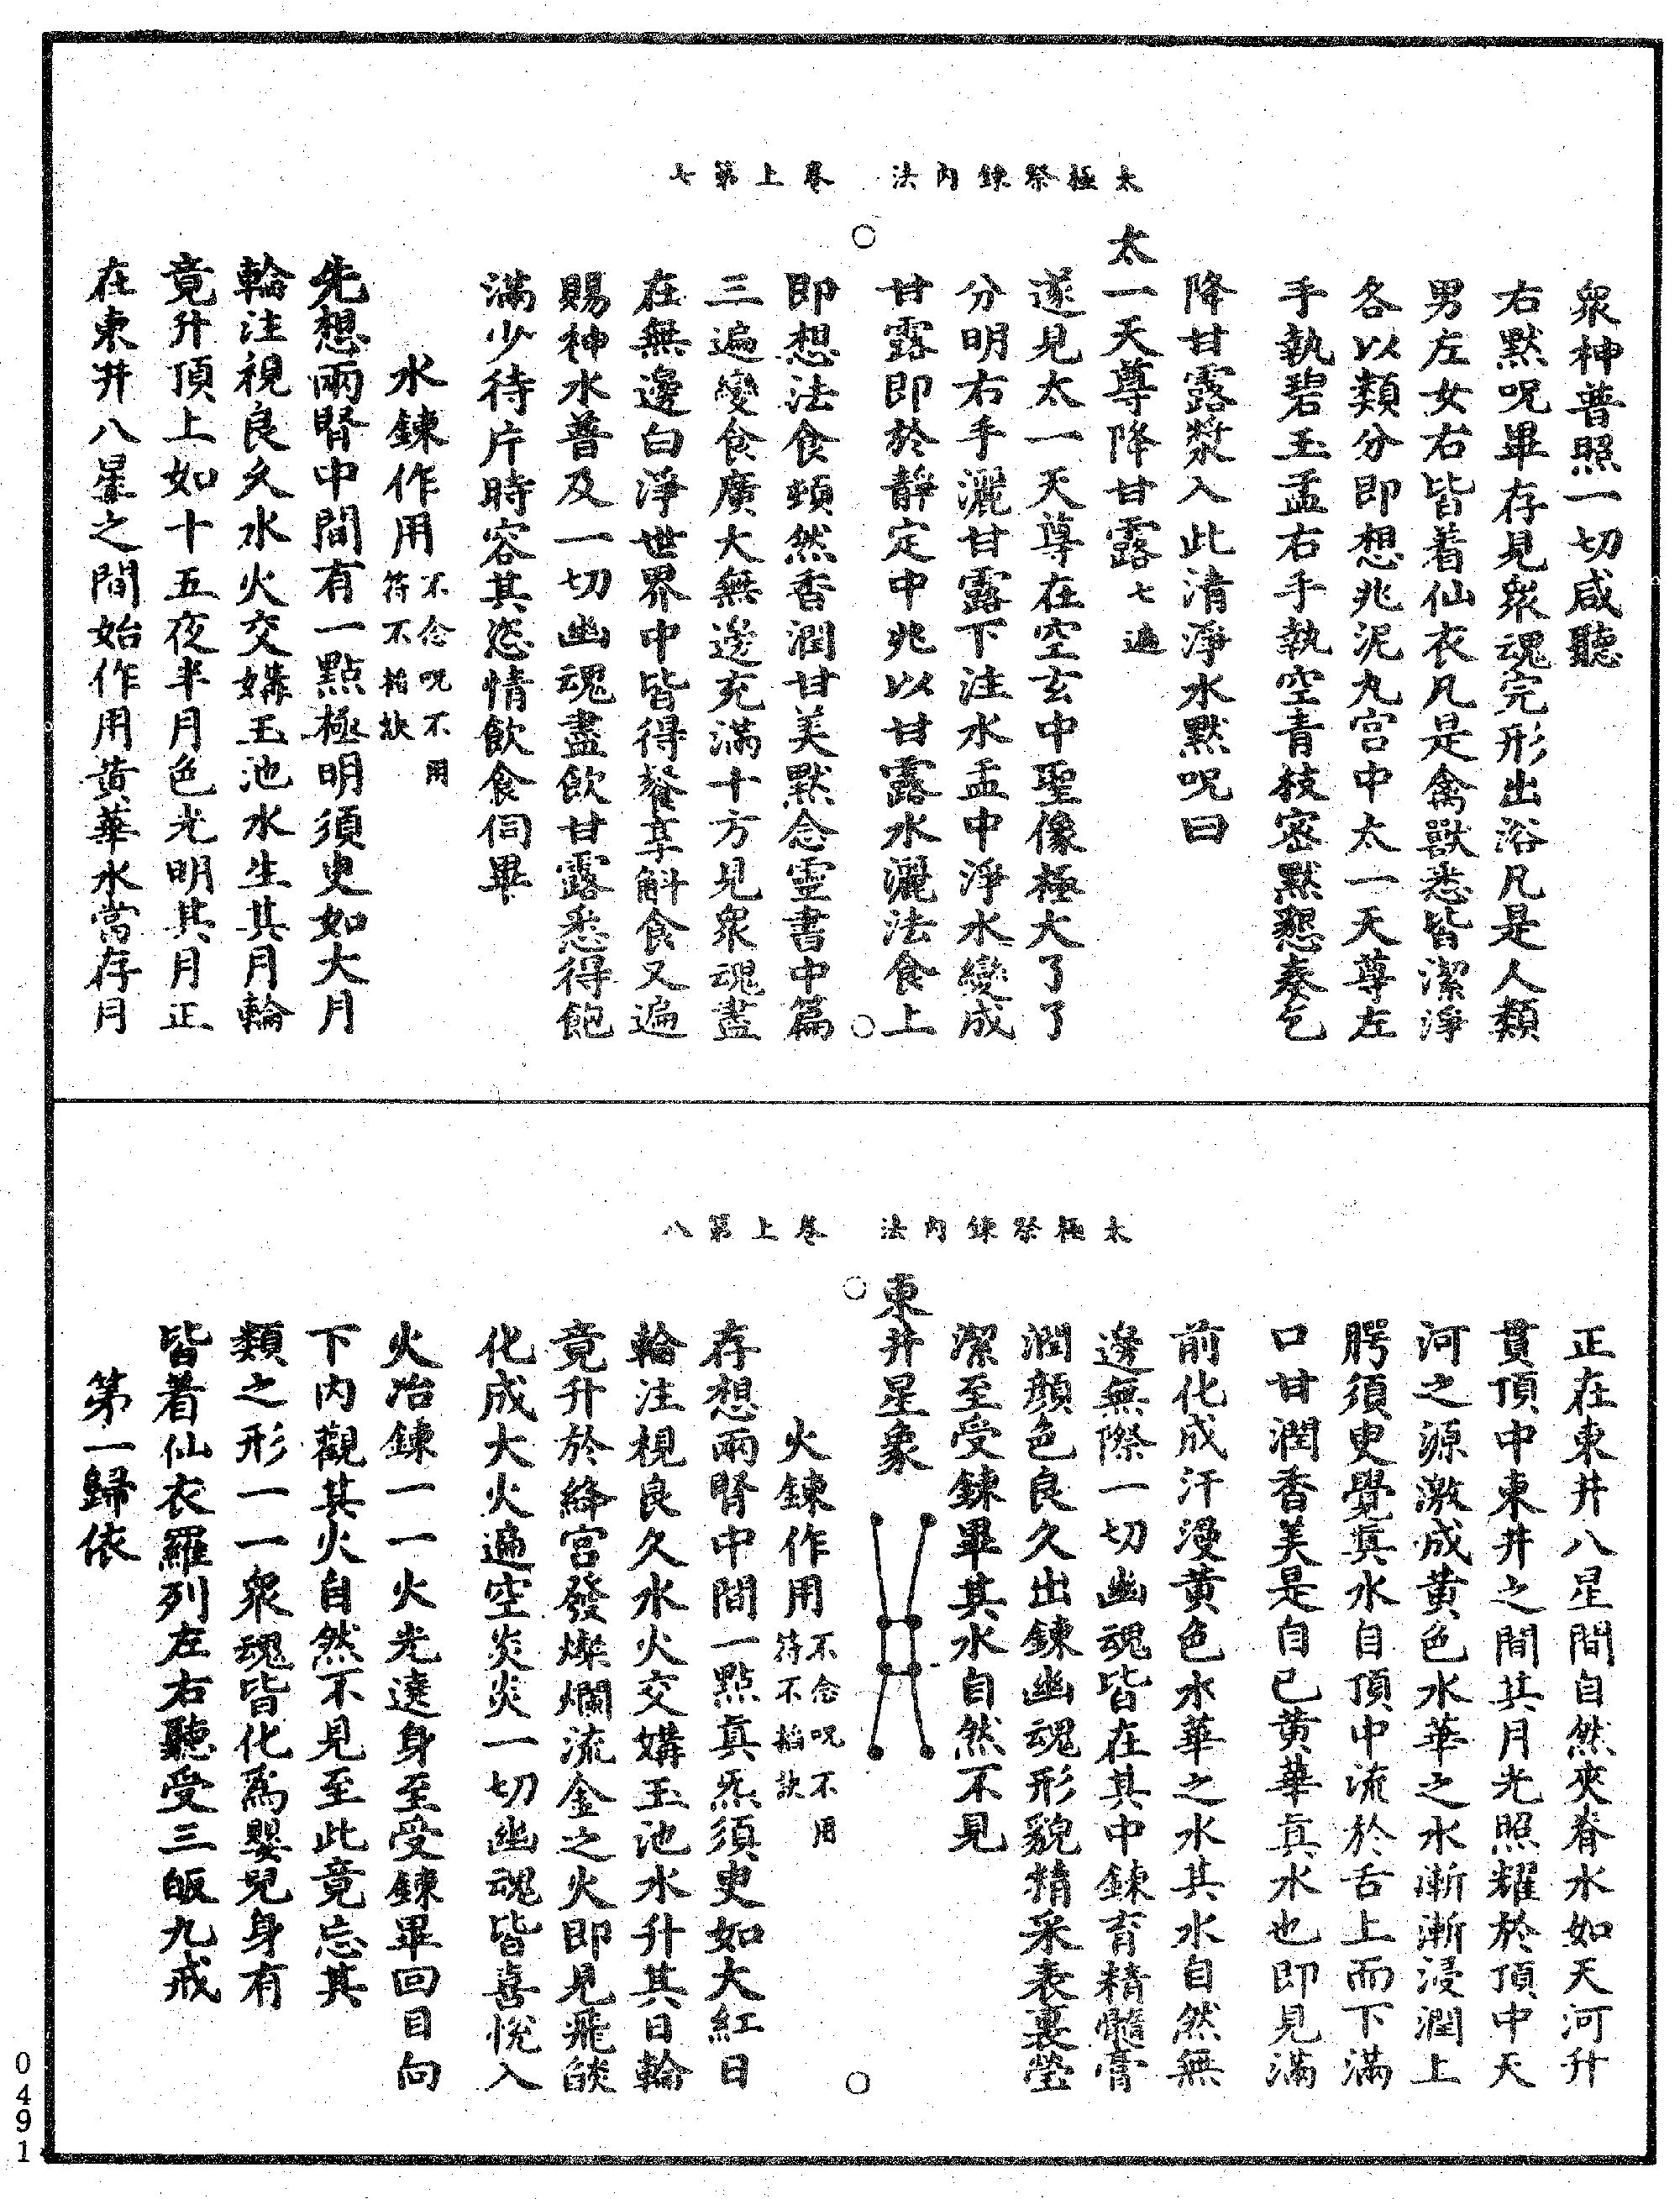 太極祭鍊內法　卷上第七
衆神普照一切咸聽
右默呪畢存見衆魂完形出浴凡是人類
男左女右皆着仙衣凡是禽獸悉皆潔淨
各以類分即想兆泥丸宮中太一天尊左
手執碧玉盂右手執空青枝密默懇奏乞
降甘露漿入此清淨水默呪曰
太一天尊降甘露七遍
遂見太一天尊在空玄中聖像極大了了
分明右手灑甘露下注水盂中淨水變成
甘露即於靜定中兆以甘露水灑法食上
即想法食頓然香潤甘美默念靈書中篇
三遍變食廣大無邊充滿十方見衆魂盡
在無邊白淨世界中皆得餐享斛食又遍
賜神水普及一切幽魂盡飲甘露悉得飽
滿少待片時容其恣情飲食伺畢
水鍊作用不念呪不用符不掐訣
先想兩腎中間有一點極明須臾如大月
輪注視良久水火交媾玉池水生其月輪
竟升頂上如十五夜半月色光明其月正
在東井八星之間始作用黃華水當存月
太極祭鍊內法　卷上第八
正在東井八星間自然夾脊水如天河升
貫頂中東井之間其月光照耀於頂中天
河之源激成黃色水華之水漸漸浸潤上
腭須臾覺真水自頂中流於舌上而下滿
口甘潤香美是自己黃華真水也即見滿
前化成汗漫黃色水華之水其水自然無
邊無際一切幽魂皆在其中鍊育精髓膏
潤顔色良久出鍊幽魂形貌精采表裏瑩
潔至受鍊畢其水自然不見
東井星象
火鍊作用不念呪不用符不掐訣
存想兩腎中間一點真炁須臾如大紅日
輪注視良久水火交媾玉池水升其日輪
竟升於絳宮發燦爛流金之火即見飛𦦨
化成大火遍空炎炎一切幽魂皆喜悅入
火冶鍊一一火光遶身至受鍊畢回目向
下內觀其火自然不見至此竟忘其
類之形一一衆魂皆化爲嬰兒身有
皆着仙衣羅列左右聽受三皈九戒
第一歸依
0491